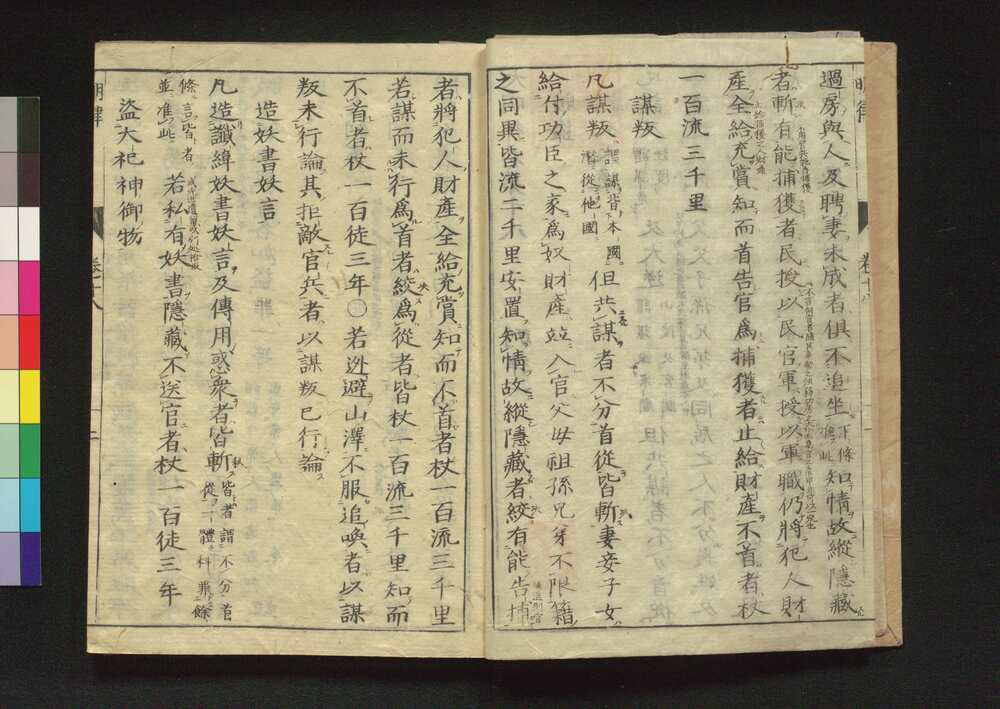 過房與人及聘妻未成者俱不追坐下條准此知情故縱隱藏
者斬有能捕獲者民授以民官軍授以軍職仍將犯人財
產全給充賞知而首告官爲捕獲者止給財產不首者杖
一百流三千里
謀叛
凡謀叛謂謀背本國潛從他國但共謀者不分首從皆斬妻妾子女
給付功臣之家爲奴財產竝入官父母祖孫兄弟不限籍
之同異皆流二千里安置知情故縱隱藏者絞有能告捕
者將犯人財產全給充賞知而不首者杖一百流三千里
若謀而未行爲首者絞爲從者皆杖一百流三千里知而
不首者杖一百徒三年○若逃避山澤不服追喚者以謀
叛未行論其拒敵官兵者以謀叛已行論
造妖書妖言
凡造讖緯妖書妖言及傳用惑衆者皆斬皆者謂不分首從一體科罪餘
條言皆者並准此若私有妖書隱藏不送官者杖一百徒三年
盜大祀神御物
明律
卷十八